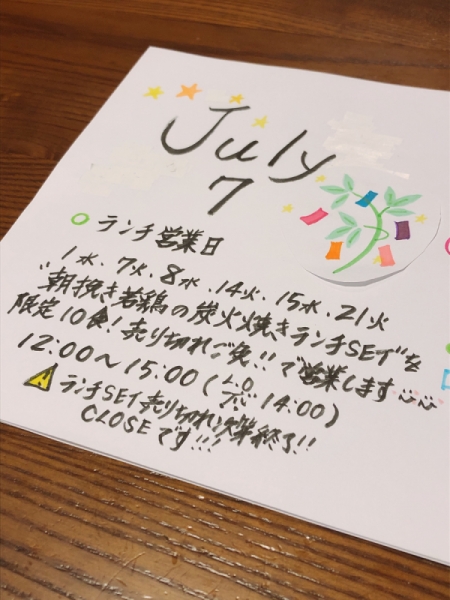 July
7
ランチ営業日
1水、7火、8水、14火、15水、21火
"朝挽き若鶏の炭火焼きランチSET"を
限定10食!売り切れご免!!で営業します
12:00〜15:00(L.O 14:00)
ランチSET売り切れ次第終了!!
CLOSEです!!!